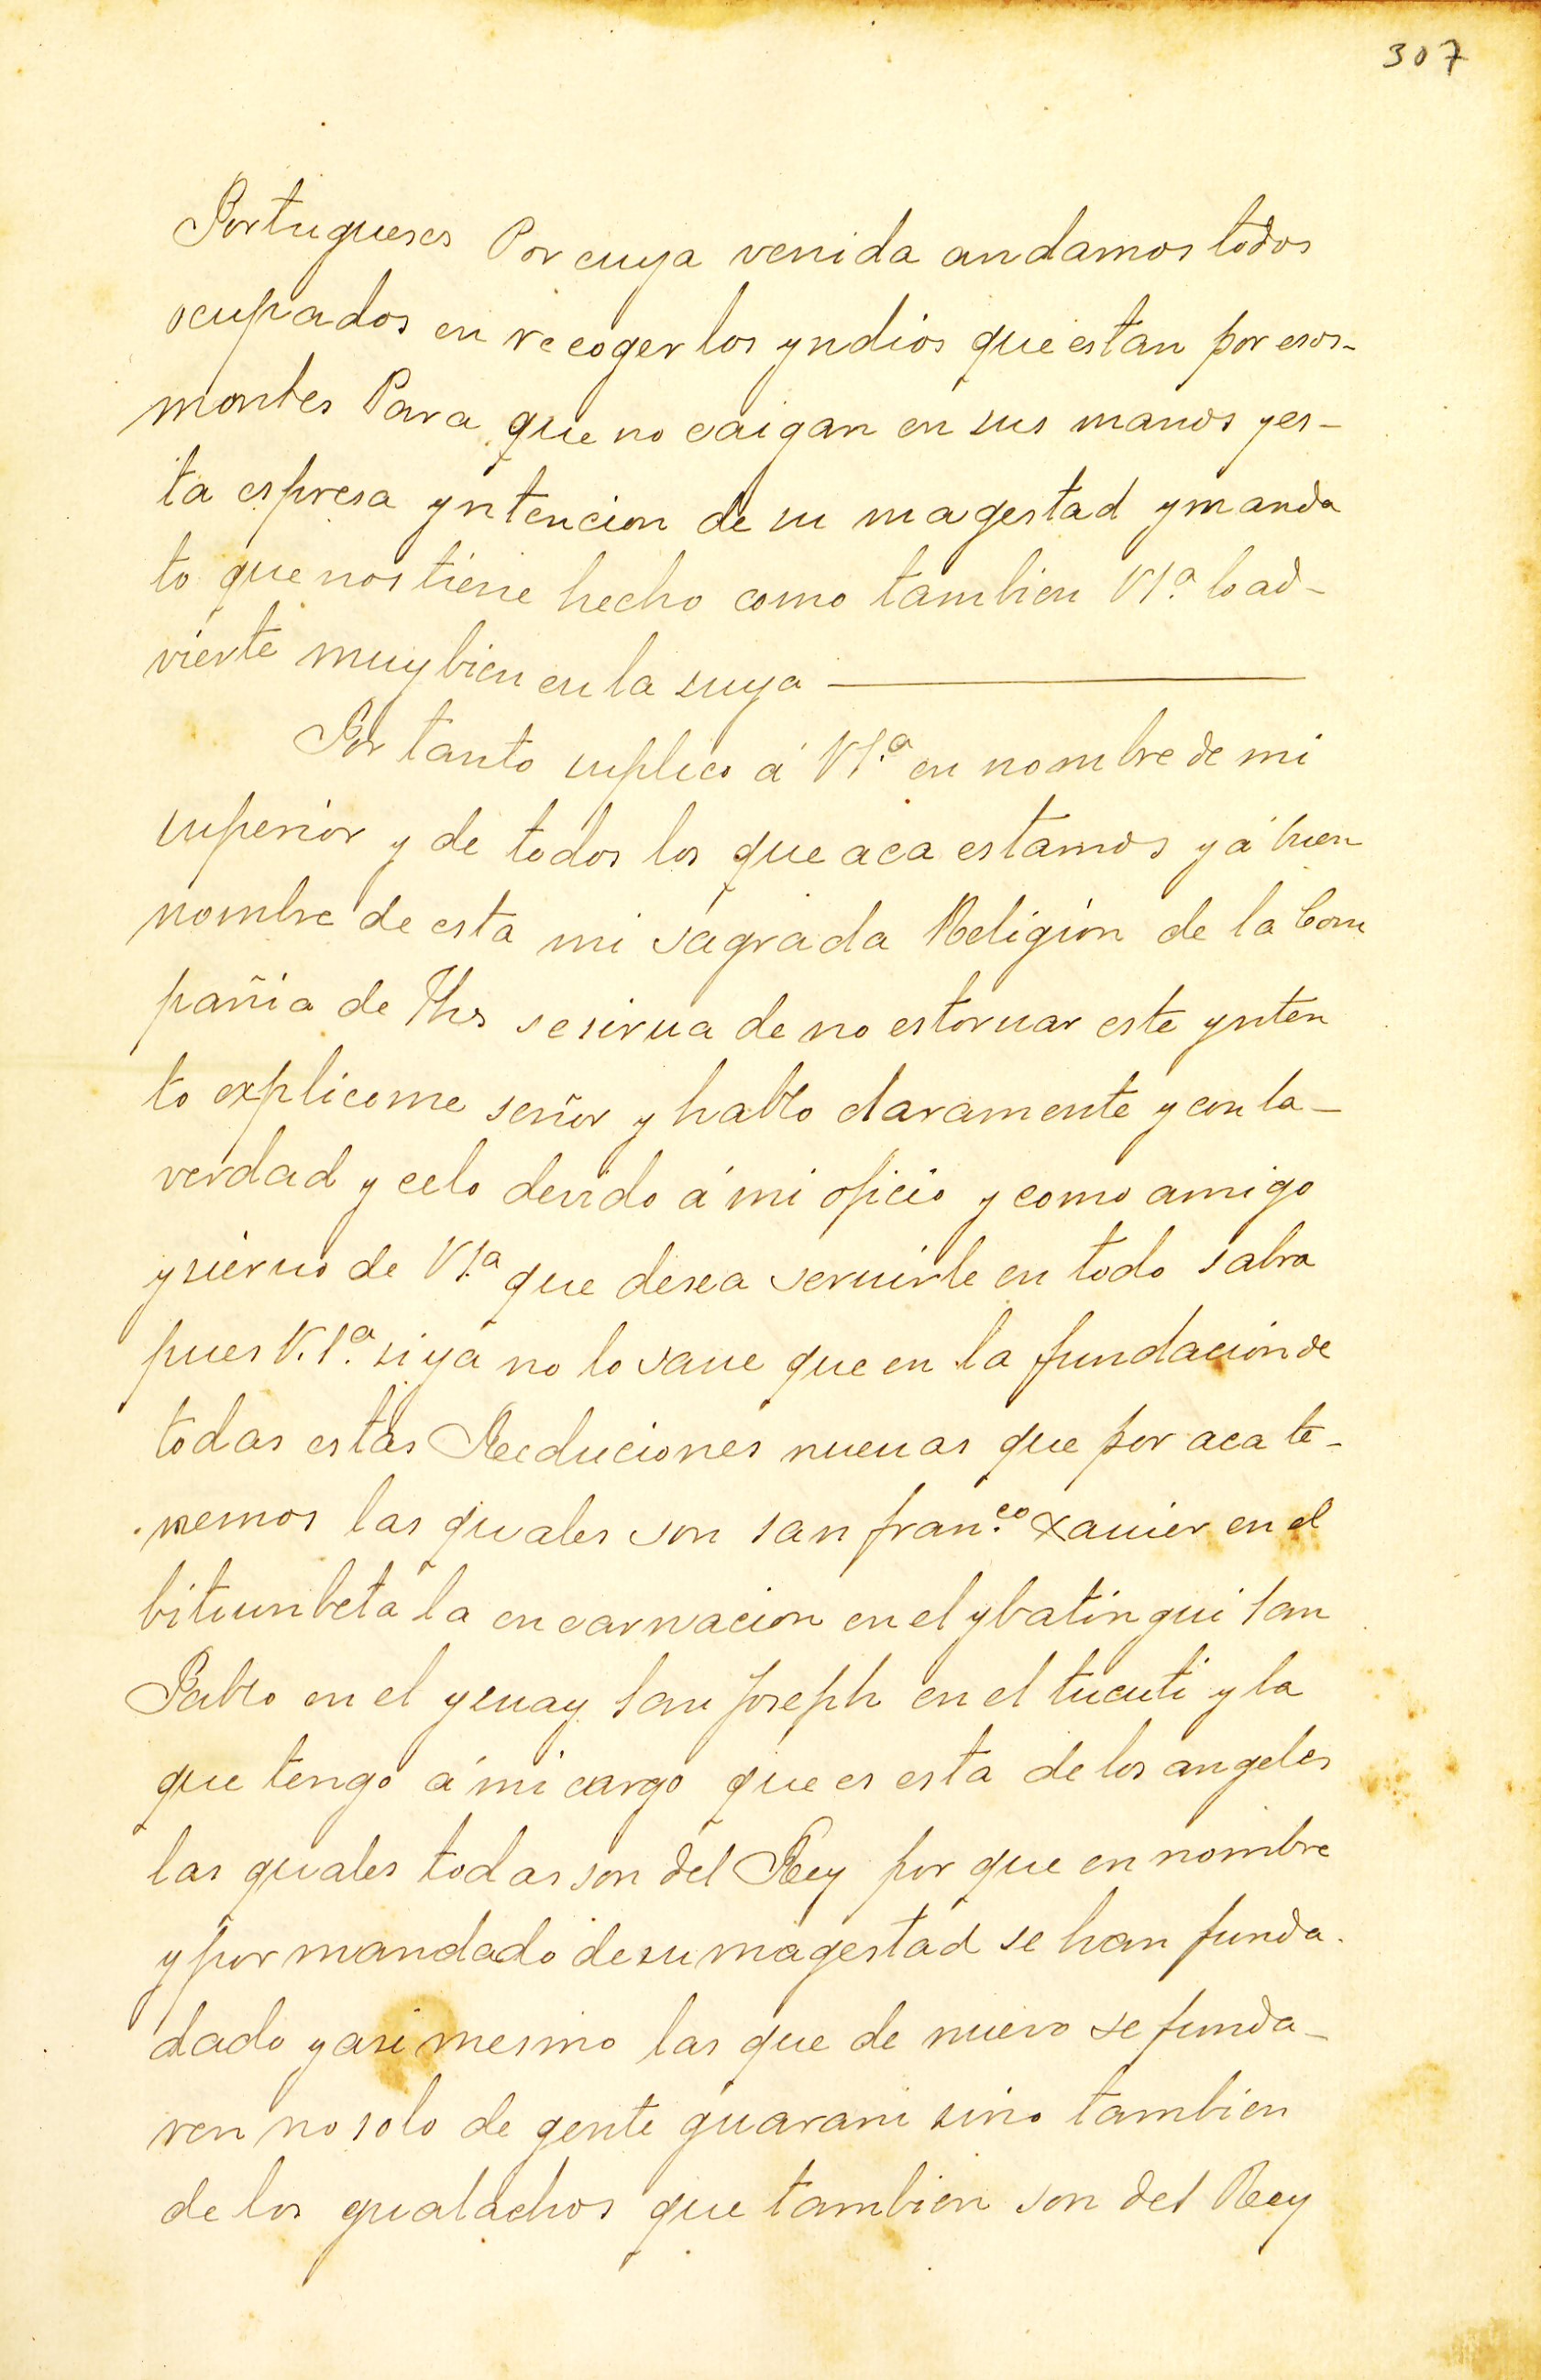 307
Portugueses Por cuya venida andamos todos
ocupados en recoger los yndios que estan por esos-
montes Para que no caigan en sus manos yes-
ta espresa yntencion de su magestad y manda
to que nos tiene hecho como tambien VSª lo ad-
vierte muy bien en la suya
Por tanto suplico á VS.ª en nombre de mi
superior y de todos los que aca estamos y á buen
nombre de esta mi sagrada Religión de la Com
pañia de Jhs se sirua de no estoruar este ynten
to explicome señor y hablo claramente y con la-
verdad y celo devido á mi oficio y como amigo
y sieruo de VS.ª que desea seruirle en todo sabra
pues V.S.ª si ya no lo saue que en la fundación de
todas estas Reduciones nueuas que por aca te-
nemos las quales son san fran.co xauier en el
bitiunbeta la encarnacion en el ybatingui san
Pablo en el yeuay san Joseph en el tucuti y la
que tengo á mi cargo que es esta de los angeles
las quales todas son del Rey por que en nombre
y por mandado de su magestad se han funda-
dado y asi mesmo las que de nuevo se funda-
ren no solo de gente guarani sino tambien
de los gualachos que tambien son del Rey